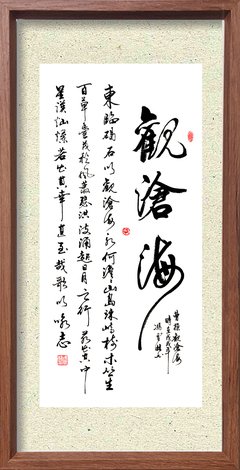 觀滄海
曹操觀滄海
東臨碣石以觀滄海水何澹澹山島竦峙樹木叢生
百草豐茂秋風蕭瑟洪波涌起日月之行若出其中
星漢燦爛若出其裏幸甚至哉歌以詠志